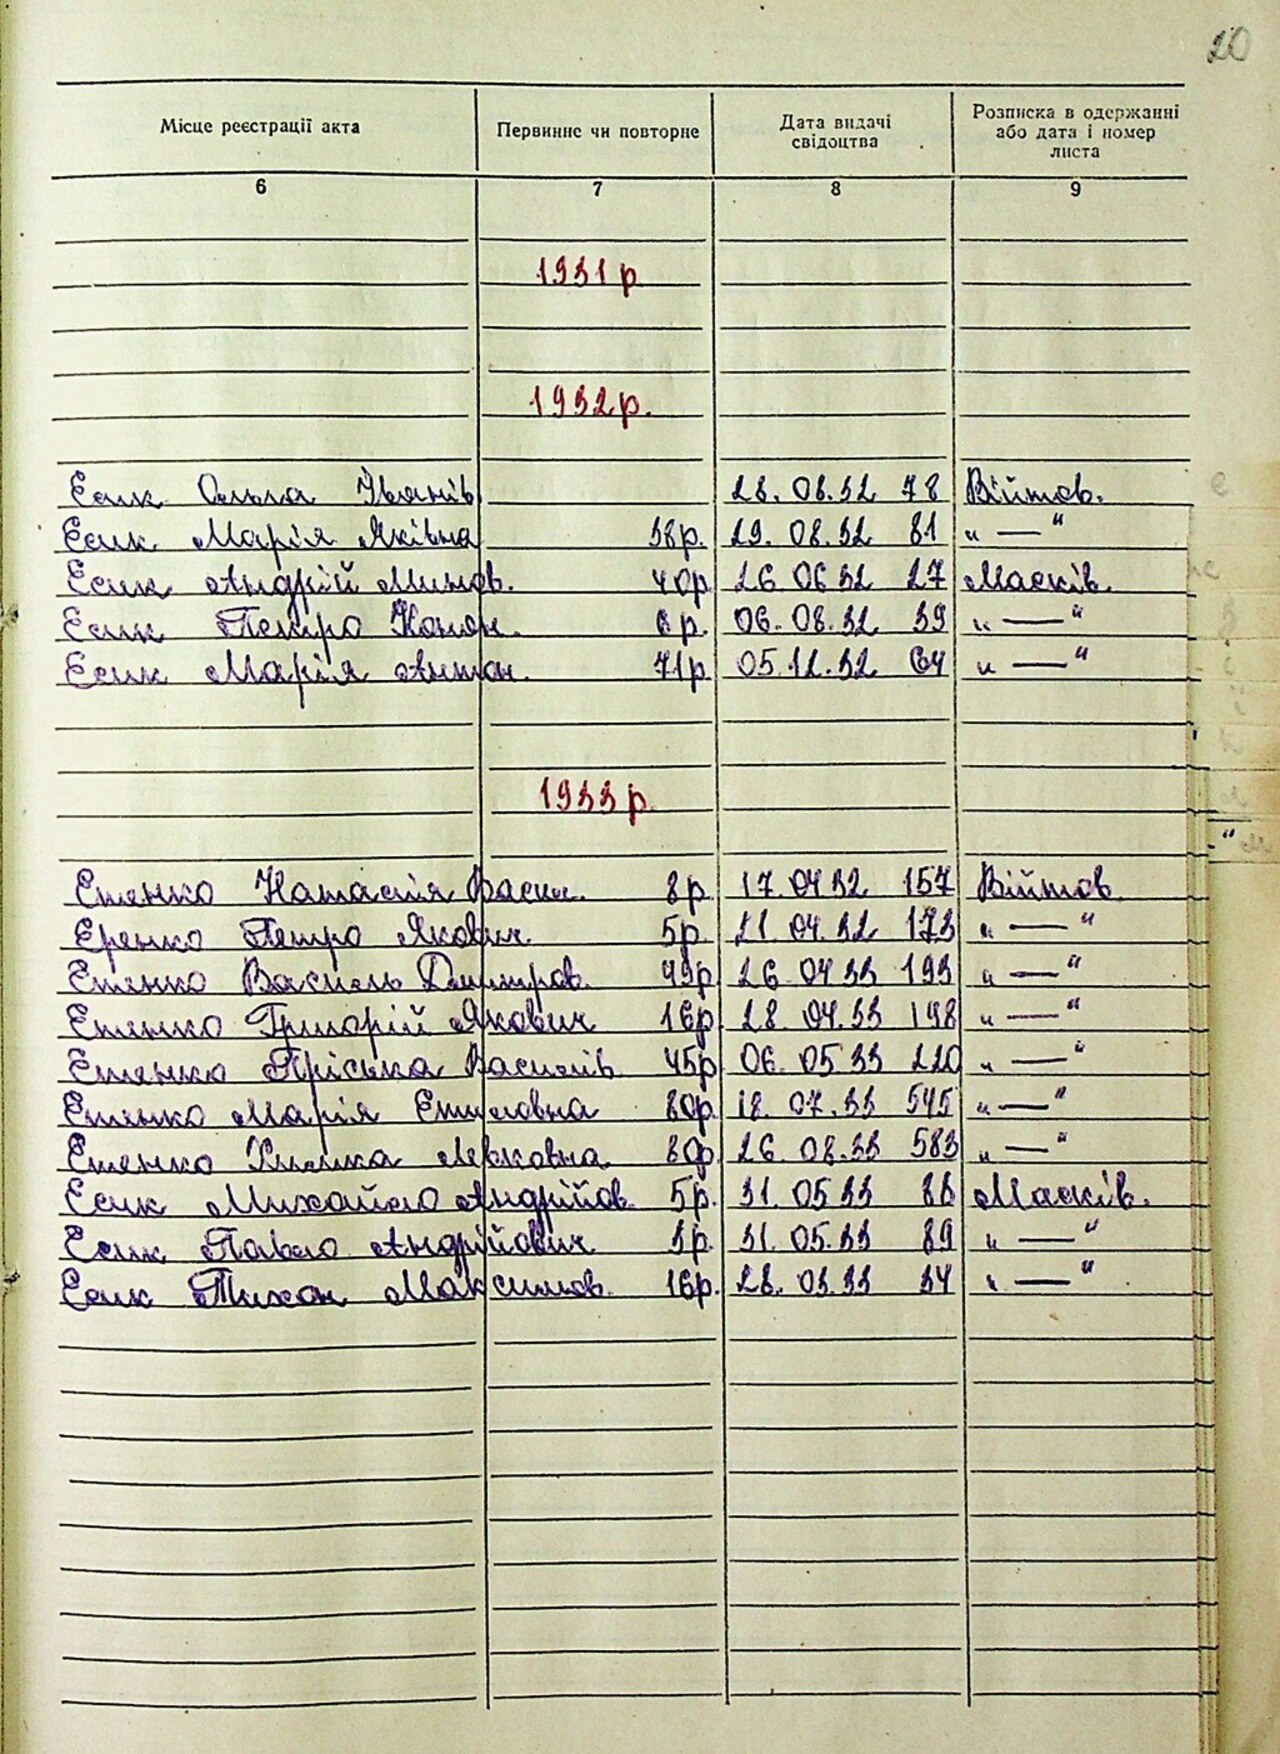 20
Місце реєстрації акта Первинне чи повторне Дата видачі свідоцтва Розписка в одержанні або дата і номер листа
6 7 8 9
1931 р.
1932 р.
Есик Ольга Іванів 28. 08. 32 78 Війтов.
Есик Марія Яківна 38р. 29. 08. 32 81 „ — “
Есик Андрій Минов. 40р. 26 06 32 27 Масків.
Есик Петро Конон. р. 06. 08. 32 39 „ — “
Есик Марія Антон. 71р. 05. 12. 32 64 „ — “
1933 р.
Етенко Натася Васил. 8р. 17. 04 32 157 Війтов.
Еренко Петро Якович. 5р. 21. 04. 32 173 „ — “
Етенко Василь Дмитров. 49р. 26 04 33 193 „ — “
Етенко Григорій Якович 16р. 28. 04. 33 198 „ — “
Етенко Пріська Василів 45р. 06. 05 33 220 „ — “
Етенко Марія 80р. 18. 07. 33 545 „ — “
Етенко Левковна 80р. 26. 08. 33 583 „ — “
Есик Михайло Андрійов. 5р. 31. 05 33 88 Масків.
Есик Павло Андрійович 3р. 31. 05. 33 89 „ — “
Есик Тихон Максимов. 16р. 28. 03. 33 34 „ — “